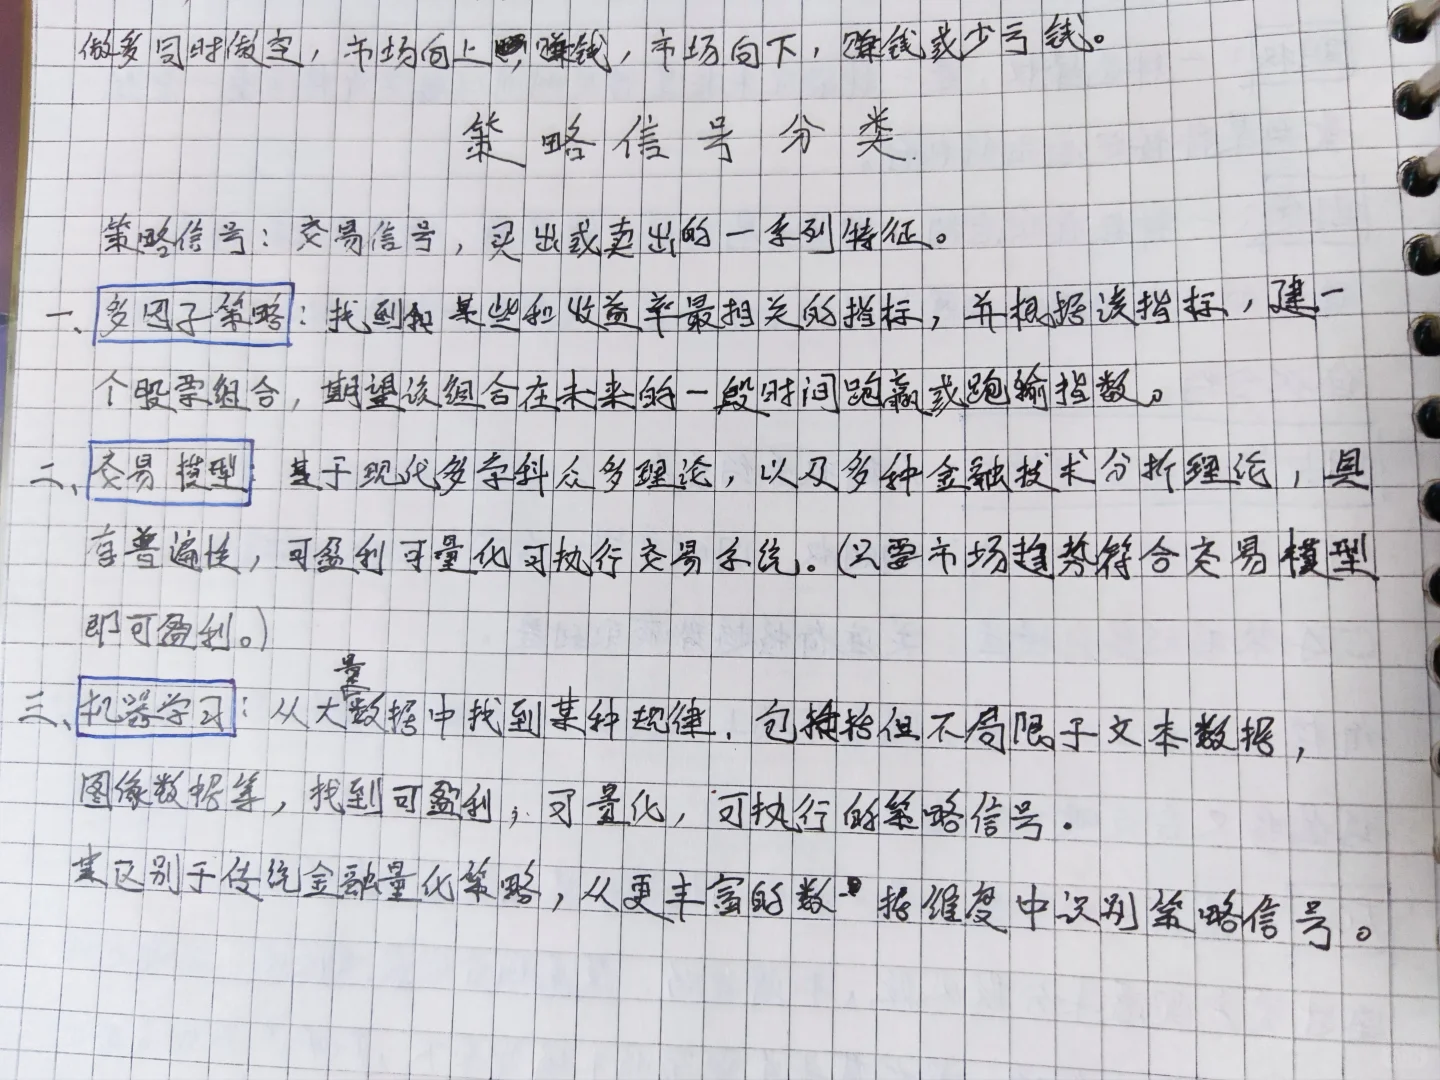 做多同时做空，市场向上，赚钱，市场向下，赚钱或少亏钱。
策略信号分类
策略信号：交易信号，买出或卖出的一系列特征。
一、多因子策略：找到和某些和收益率最相关的指标，并根据该指标，建一
个股票组合，期望该组合在未来的一段时间跑赢或跑输指数。
二、交易模型：基于现代多学科众多理论，以及多种金融技术分析理论，具
有普遍性，可盈利可量化可执行交易系统。（只要市场趋势符合交易模型
即可盈利。）
三、机器学习：从大量数据中找到某种规律，包括但不局限于文本数据，
图像数据等，找到可盈利，可量化，可执行的策略信号.
其区别于传统金融量化策略，从更丰富的数据维度中识别策略信号。